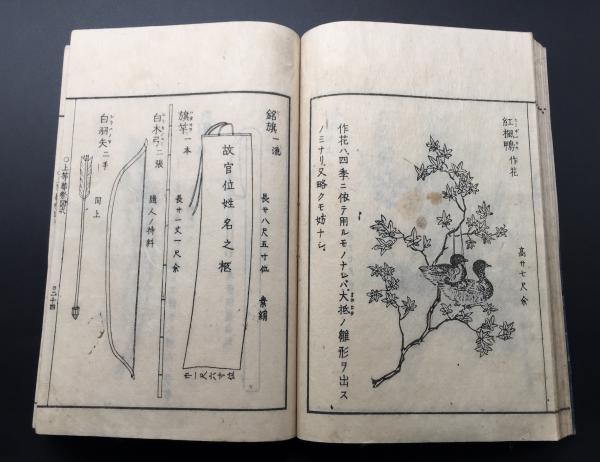 紅楓鴨 作花
高サ七尺余
作花ハ四季ニ依テ用ルモノナレバ大抵ノ雛形ヲ出ス
ノミナリ又略クモ妨ナシ
銘旗 一流
長サ八尺五寸位 素絹
故官位姓名之柩
巾一尺六寸位
旗竿 一本
長サ一丈一尺余
白木弓 二張
随人ノ持料
白羽矢 二手
同上